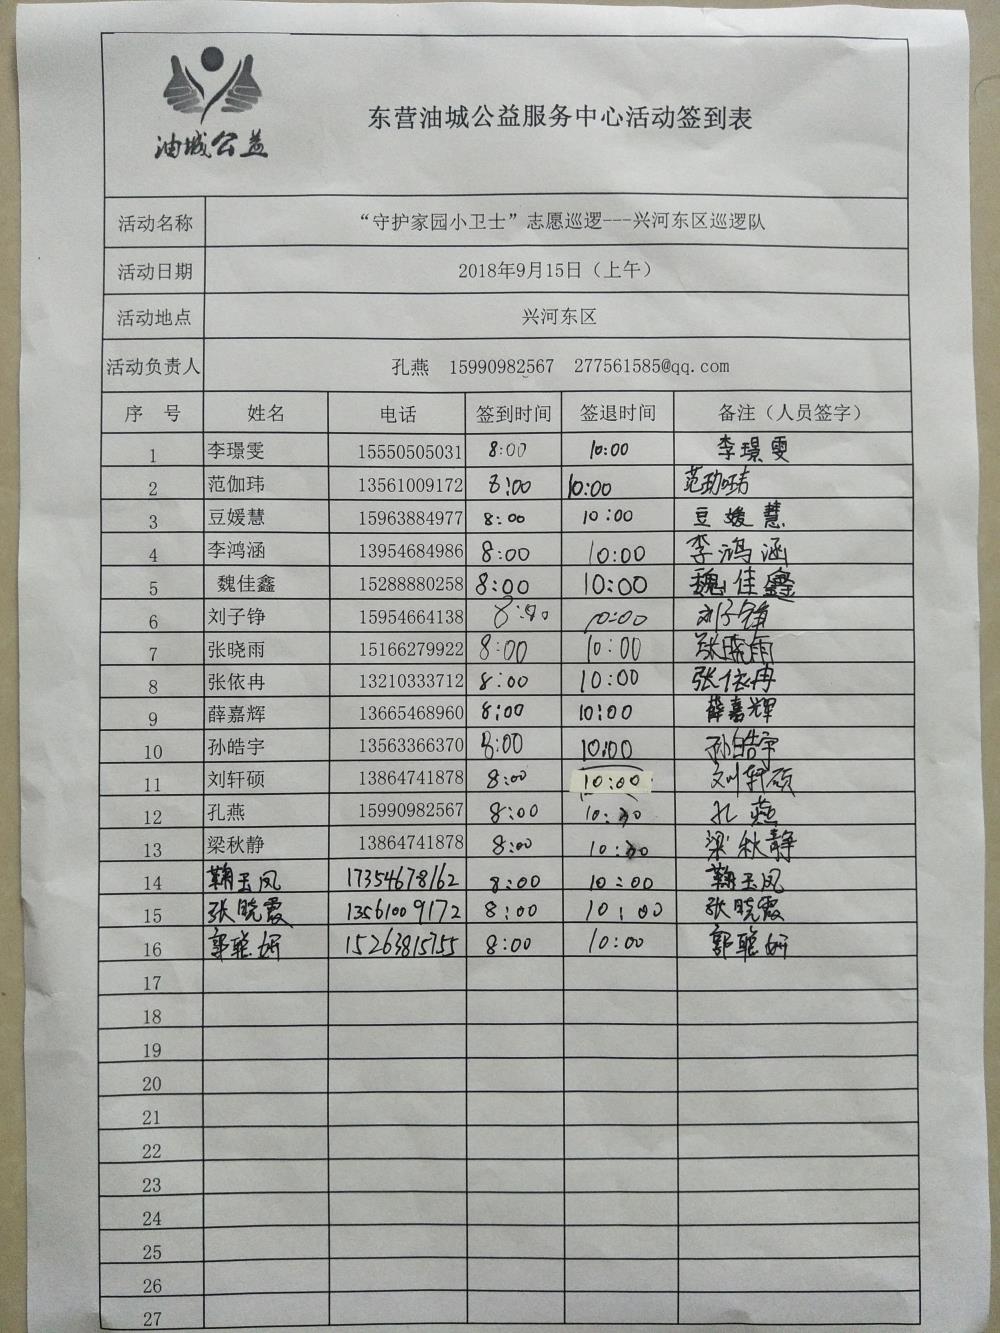 油城公益
东营油城公益服务中心活动签到表
活动名称 “守护家园小卫士”志愿巡逻---兴河东区巡逻队
活动日期 2018年9月15日（上午）
活动地点 兴河东区
活动负责人 孔燕 15990982567 277561585@qq.com
序 号 姓名 电话 签到时间 签退时间 备注（人员签字）
1 李璟雯 15550505031 8:00 10:00 李璟雯
2 范伽玮 13561009172 8:00 10:00
3 豆媛慧 15963884977 8:00 10:00 豆媛慧
4 李鸿涵 13954684986 8:00 10:00 李鸿涵
5 魏佳鑫 15288880258 8:00 10:00 魏佳鑫
6 刘子铮 15954664138 8:00 10:00 刘子铮
7 张晓雨 15166279922 8:00 10:00 张晓雨
8 张依冉 13210333712 8:00 10:00 张依冉
9 薛嘉辉 13665468960 8:00 10:00 薛嘉辉
10 孙皓宇 13563366370 8:00 10:00 孙皓宇
11 刘轩硕 13864741878 8:00 10:00 刘轩硕
12 孔燕 15990982567 8:00 10:30 孔燕
13 梁秋静 13864741878 8:00 10:30 梁秋静
14 鞠玉凤 17354678162 8:00 10:00 鞠玉凤
15 张晓霞 13561009172 8:00 10:00 张晓霞
16 郭聪妍 15263815755 8:00 10:00 郭聪妍
17
18
19
20
21
22
23
24
25
26
27